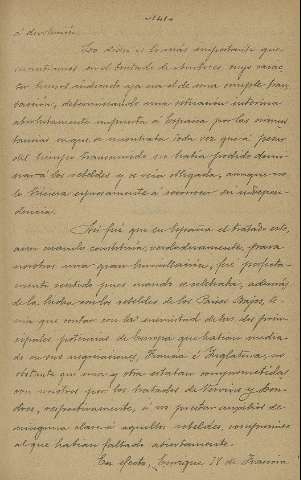 -141-
á devolución.
Lo dicho es lo más importante que
encontramos en el tratado de Amberes cuyo carác-
ter hemos indicado aya era el de una simple tran-
sacción, determinándo una extraña interina
absolutamente impuesta á España por las circuns-
tancias en que se encontraba toda vez que á pesar
del tiempo transcurrido no habia podido domi-
nar á los rebeldes y se veía obligada, aunque no
lo hiciera expresamente á reconocer su indepen-
dencia.
Así fué que en España el tratado este,
aun cuando constituía, verdaderamente, para
nosotros una gran humillación, fué perfecta-
mente sentido pues cuando se celebraba, además
de la lucha con los rebeldes de los Países Bajos, te-
nia que contar con la enemistad de las dos prin-
cipales potencias de Europa que habian media-
do en sus negociaciones, Francia é Inglaterra, no
obstante que una y otra estaban comprometidas
con nosotros por los tratados de Vervins y Lon-
dres, respectivamente, á no prestar auxilios de
ninguna clase á aquellos rebeldes, compromiso
al que habian faltado abiertamente.
En efecto, Enrique IV de Francia